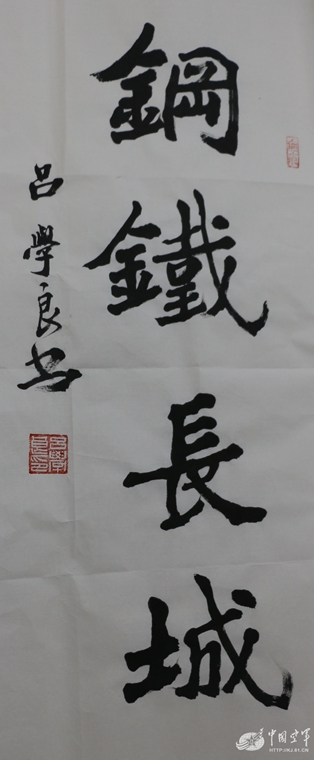 鋼鐵長城
吕學良书
中国空军
HTTP://KJ.81.CN